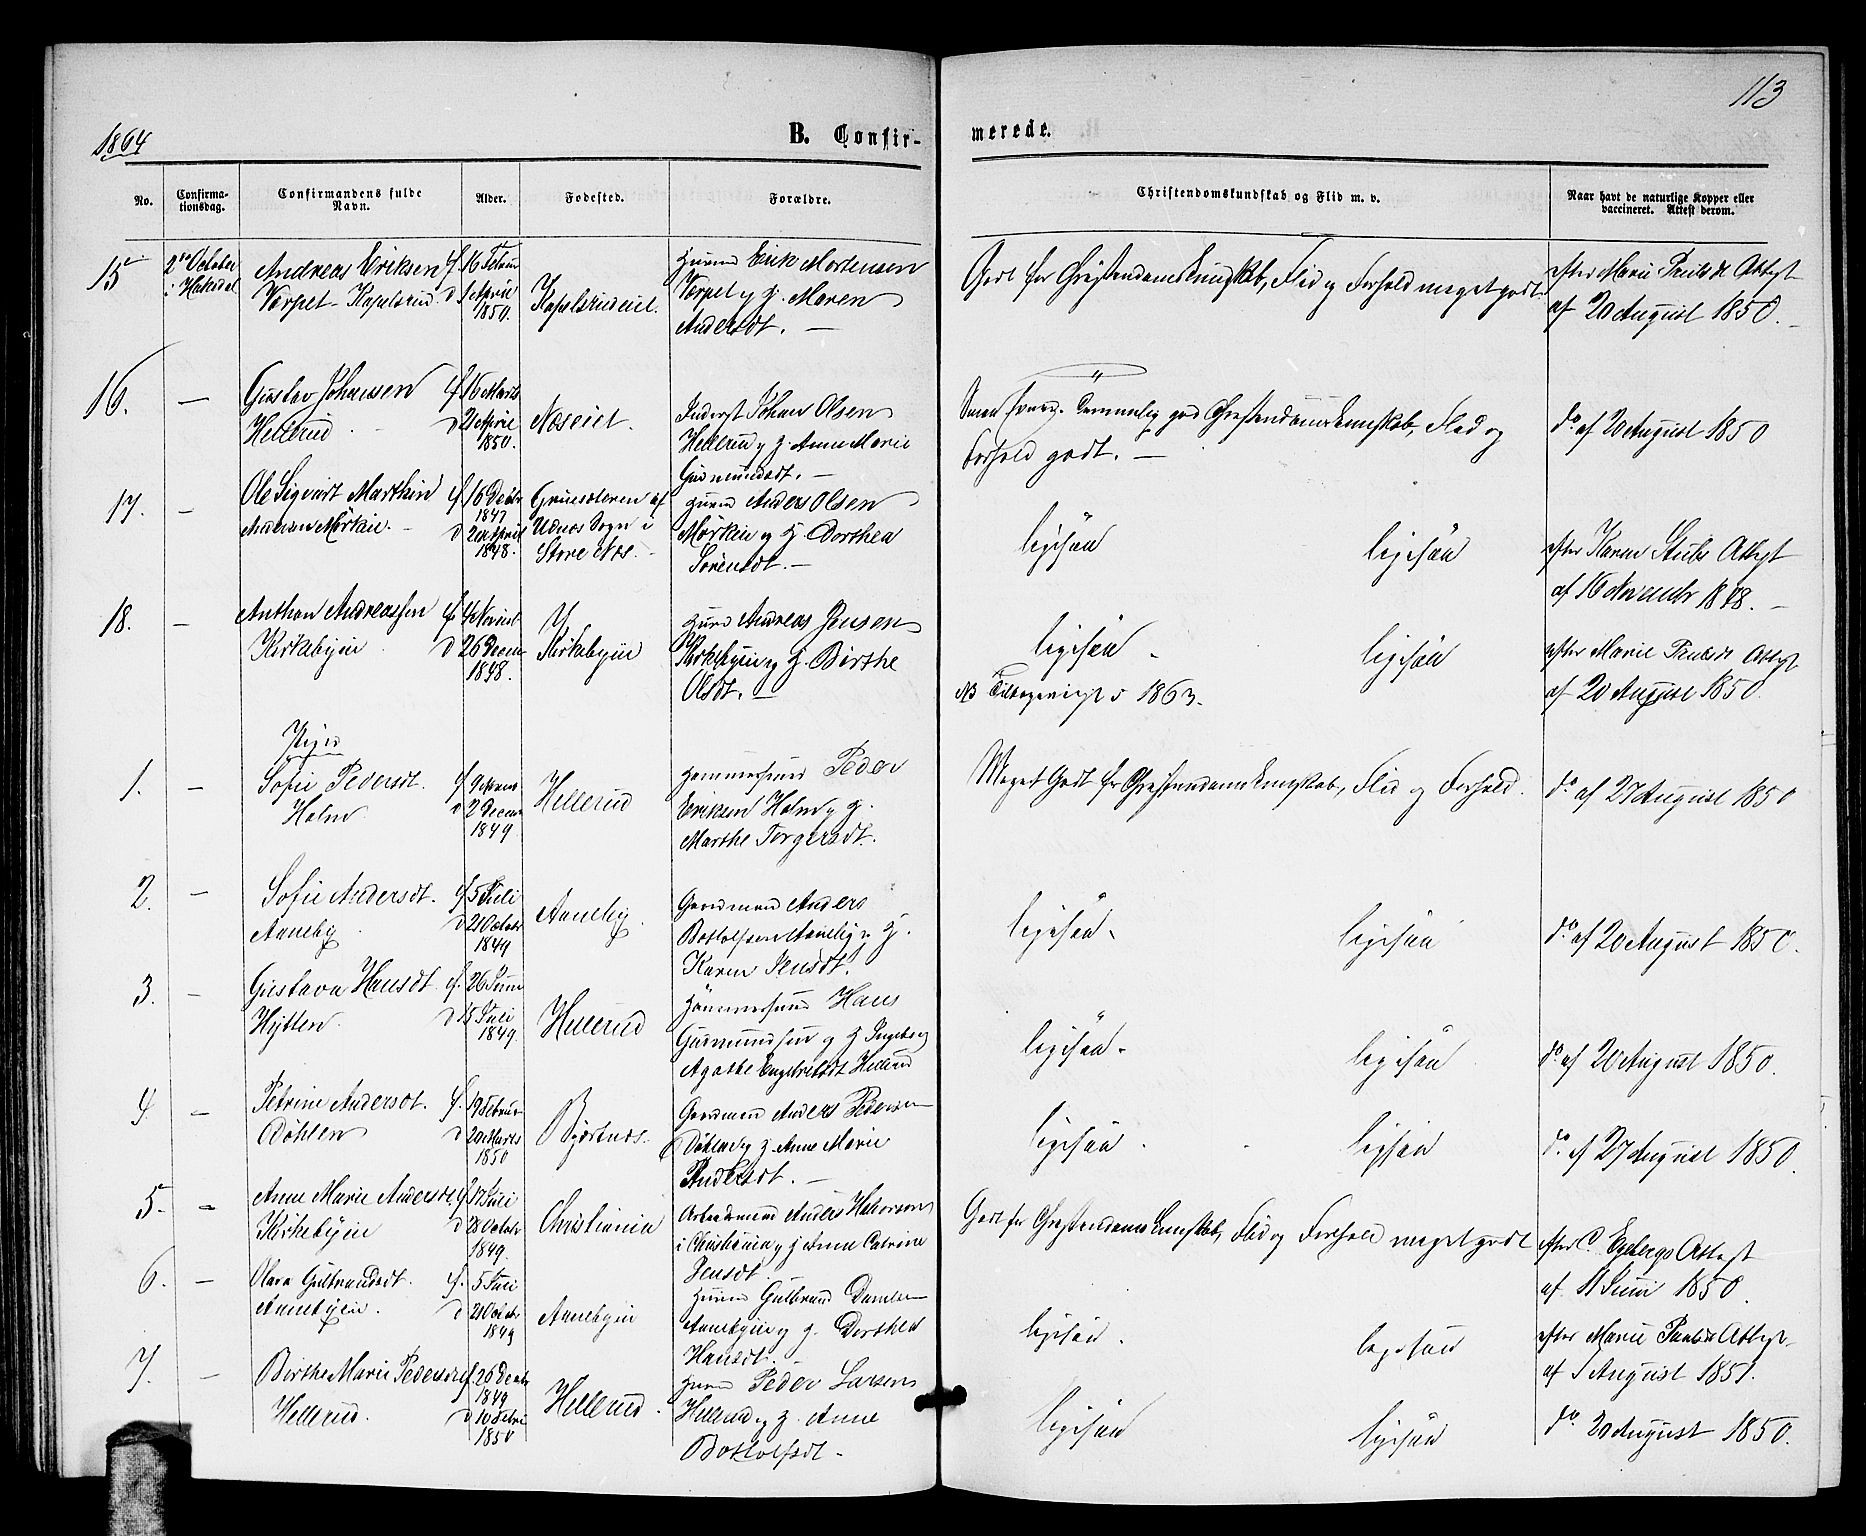 113
1864
B. Confir-
merede.
No.
Confirma-
tionsdag.
Confirmandens fulde
Navn.
Alder.
Fødested.
Forældre.
Christendomskundskab og Flid m. v.
Naar havt de naturlige Kopper eller
vaccineret. Attest derom.
15
2den October
i Hakedal
Andreas Eriksen
Kapelsrud
f. 16 Febru
d 1 April
1850.
Kapelsrudeiet.
Huusm Erik Mortensen
og H. Maren
Andersdt. —
Godt for Christendomskundskab, Flid og Forhold meget godt.
efter Marie Attest
af 20 August 1850. —
16.
—
Gustav Johansen
Hellerud
f. 16 Marts
d 2 April
1850.
Næseiet.
Inderst Johan Olsen
Hellerud og H. Anne Marie
Gudmundsdt. —
Temmelig god Christendomskundskab, Flid og
Forhold godt. —
do af 20 August 1850
17.
—
Ole Sigvart Marthin
Mørkin. —
f. 16 Decbr
1847
d 24 April
1848.
af
Udnæs Sogn i
Store Næs. —
Huusm Anders Olsen
Mørkin og H. Dorthea
Sørensdt. —
ligesaa
ligesaa
efter Karen Stubs Attest
af 16 November 1848. —
18.
—
Anthon Andreassen
Kirkebyen
f. 4 Novbr
d 26 Decem
1848.
Kirkebyen
Huusm Andreas Jensen
Kirkebyen og H. Birthe
Olsdt. —
ligesaa
ligesaa
NB 1863.
efter Marie Attest
af 20 August 1850.
Piger
1.
—
Sofie Pedersdt.
Holm
d 2 Decem
1849
Hellerud
Hammersmed Peder
Eriksen Holm og H.
Marthe Torgersdt.
Meget Godt for Christendomskundskab, Flid og Forhold.
do af 27 August 1850
2.
—
Sofie Andersdt.
Aaneby
f. 5 Juli
d 21 Octobr
1849
Aaneby.
Gaardmand Anders
Bottolfsen Aaneby og H.
Karen Jensdt.
ligesaa
ligesaa
do af 20 August 1850.
3.
—
Gustava Hansdt.
Hytten.
f. 26 Juni
d 15 Juli
1849.
Hellerud
Hammersmed Hans
Gudmundsen og H Ingeborg
Agathe Engebretsdt Hellerud
ligesaa
ligesaa
do af 20 August 1850.
4
—
Petrine Andersdt.
Døhlen
f. 19 Februar
d 20 Marts
1850
Bjertnæs.
Gaardmand Anders Pedersen
Døhlen og H. Anne Marie
Andersdt. —
ligesaa
ligesaa
do af 27 August 1850.
5.
—
Anne Marie Andersdt.
Kirkebyen
f. 17 Juli
d 28 Octobr
1849.
Christiania
Arbeidsmand Anders Halvorsen
i Christiania og H Anne Catrine
Jensdt.
Godt for Christendomskundskab, Flid og Forhold meget godt
efter C. Egebergs Attest
af 11 Juni 1850.
6.
—
Olava Gulbrandsdt.
Aanebyeie.
f. 5 Juli
d 21 Octobr
1849
Aanebyeie
Huusm Gulbrand Danielsen
Aanebyeie og H. Dorthea
Hansdt. —
ligesaa
ligesaa
efter Marie Attest
af 1 August 1851.
7.
—
Birthe Marie Pedersdt.
Hellerud.
f. 26 Decbr
1849
d 10 Febr
1850
Hellerud.
Huusm Peder Larsen
Hellerud og H. Anne
Bottolfsdt. —
ligesaa
ligesaa
do 20 August 1850.